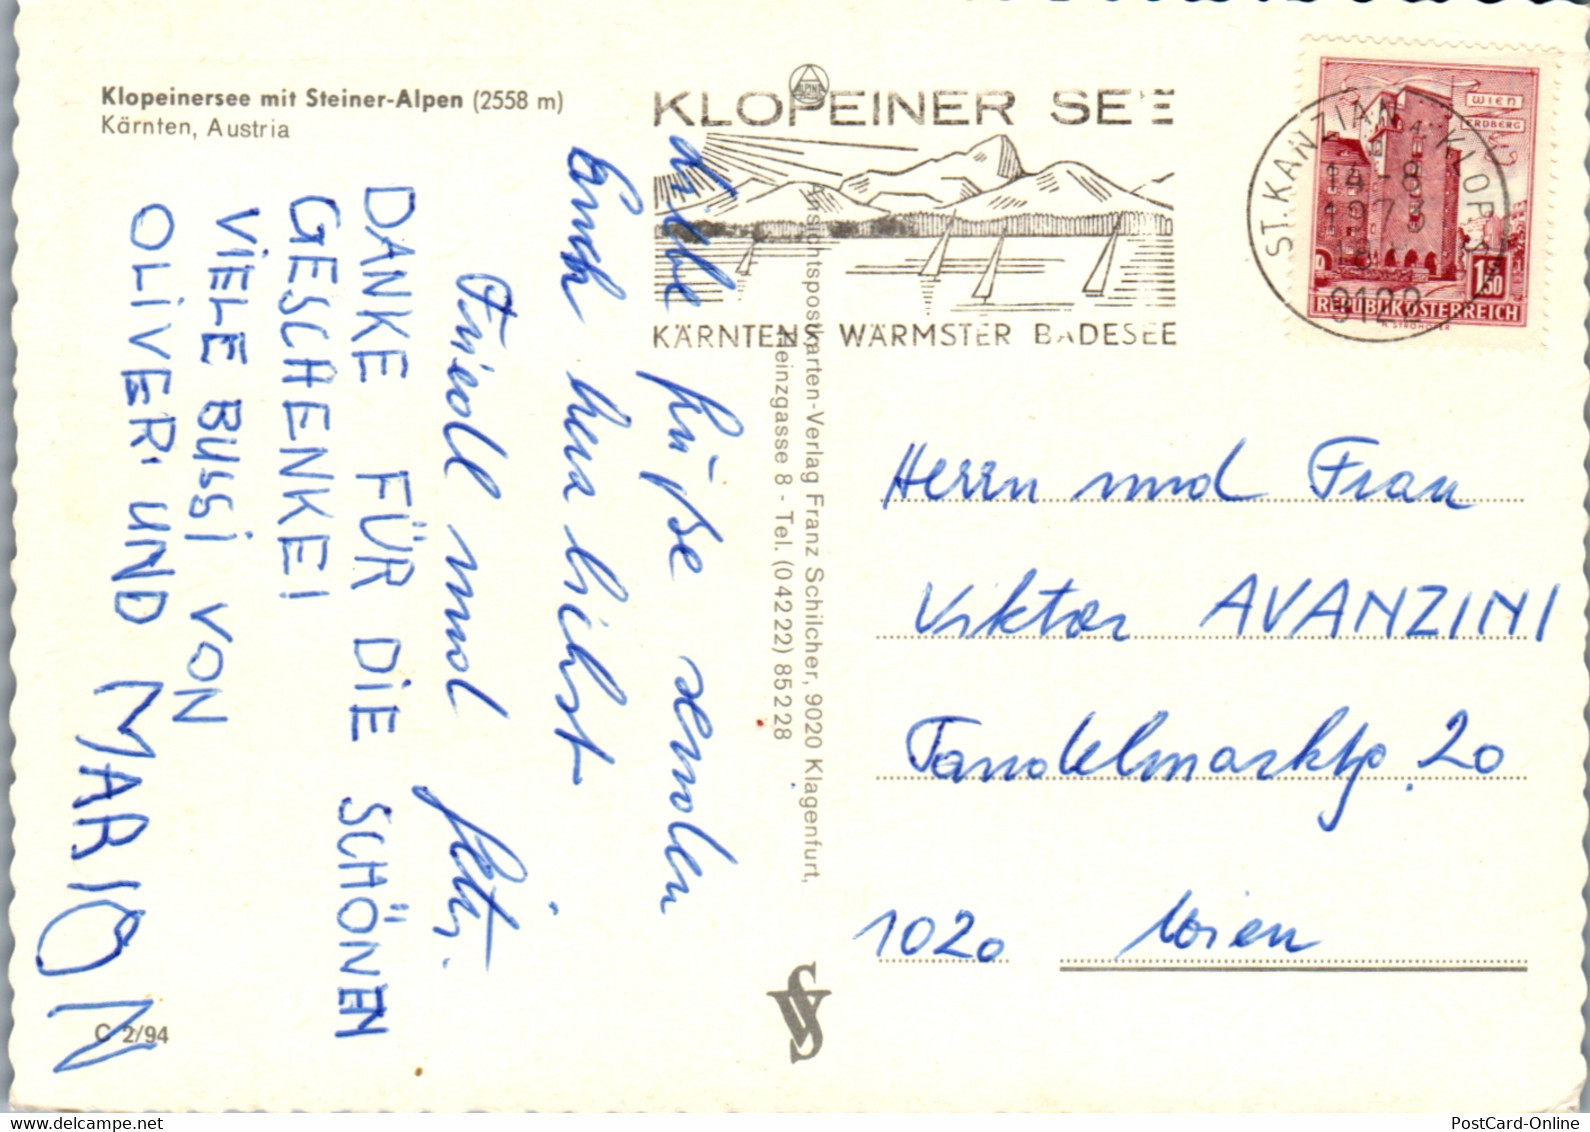 Klopeinersee mit Steiner-Alpen (2558 m)
Kärnten, Austria
KLOPEINER SEE
KÄRNTENS WÄRMSTER BADESEE
ST. KANZIAN A. KLOP. S.
14.-8
1973
9120
WIEN
ERDBERG
1.50
REPUBLIK ÖSTERREICH
Liebe Grüße senden
Euch herzlichst
Friedl und
DANKE FÜR DIE SCHÖNEN
GESCHENKE!
VIELE BUSSI VON
OLIVER UND MARION
Ansichtspostkarten-Verlag Franz Schilcher, 9020 Klagenfurt,
Heinzgasse 8 - Tel. (04222) 85228
Herrn und Frau
Viktor AVANZINI
Tandelmarktg. 20
1020 Wien
C 2/94
PostCard-Online